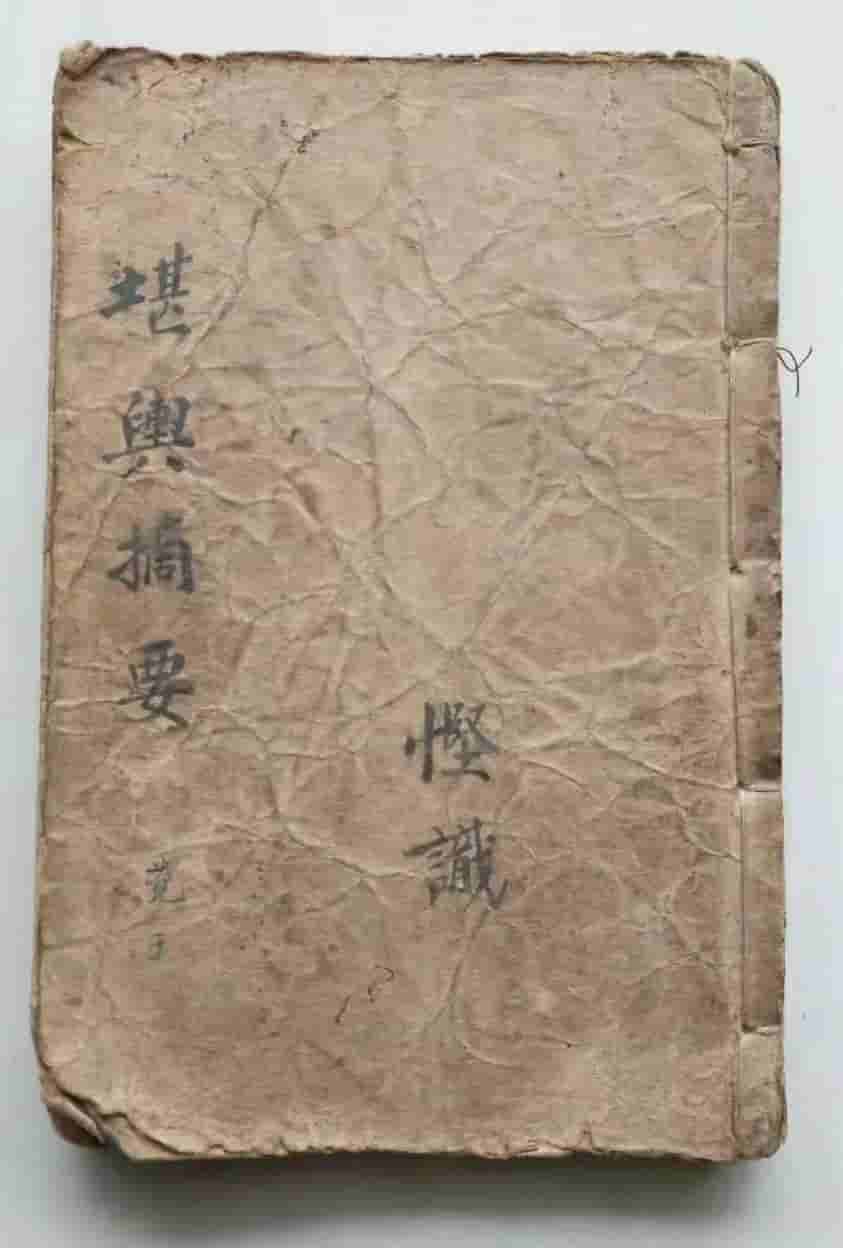 慳識
堪輿摘要